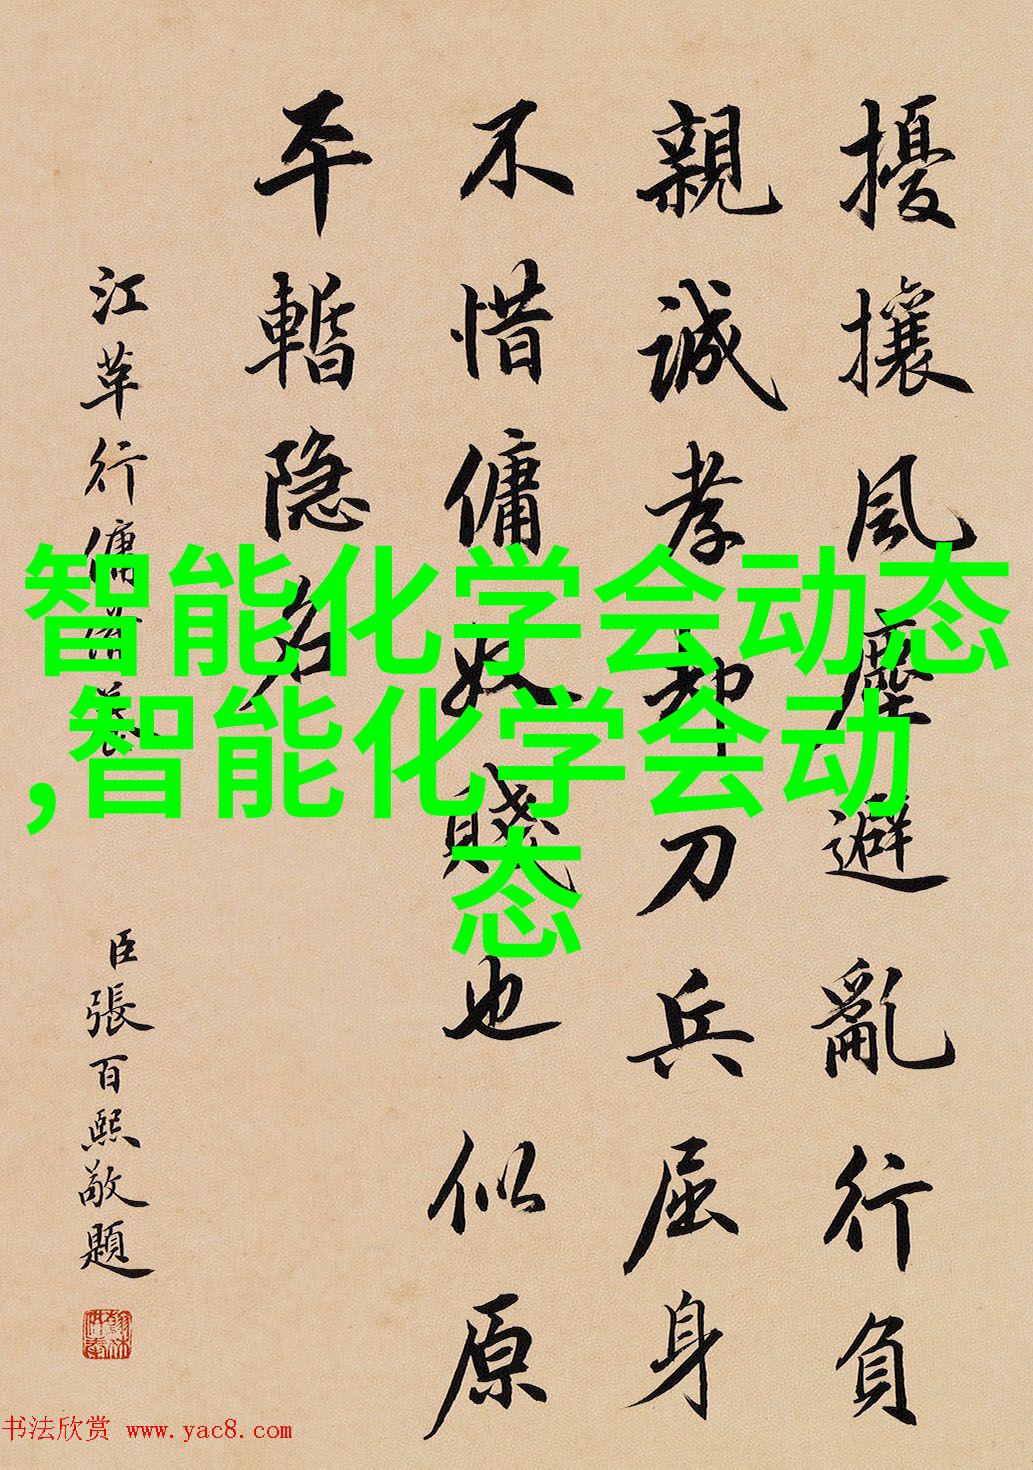 擾攘風塵避亂行負
親誠孝却刀兵屈身
不惜傭奴賤也似原
平暫隐名
江革行傭供養
臣張百熙敬題
智能化学会动态
,智能化学会动
态
书法欣赏 www.yac8.com